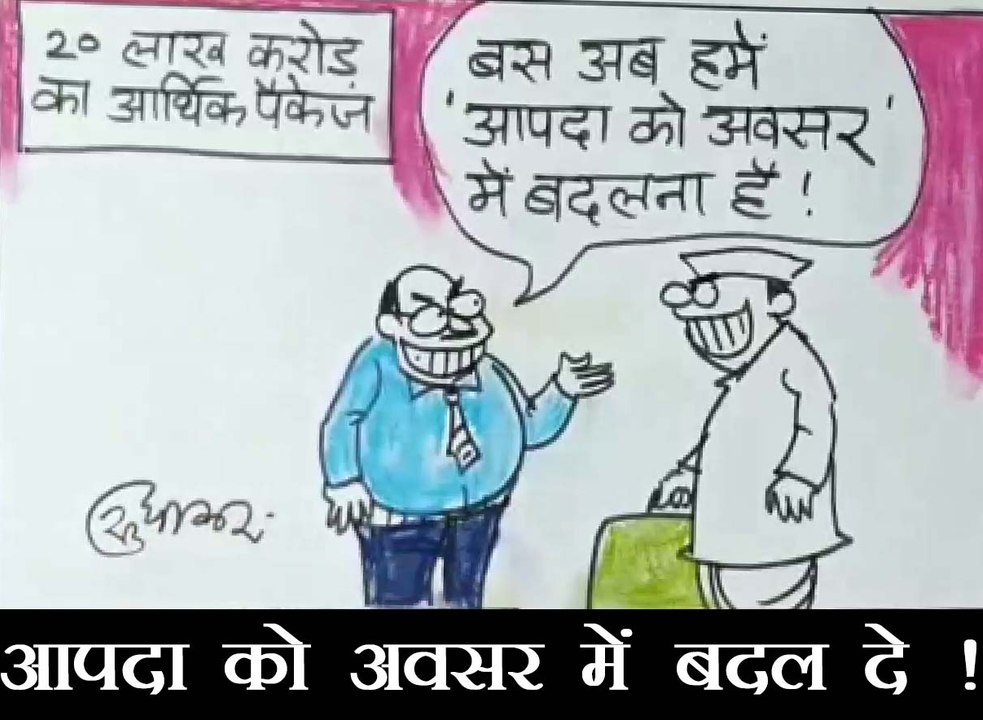 २० लाख करोड़
का आर्थिक पैकेज
बस अब हमें
'आपदा को अवसर'
में बदलना है !
सुधाकर
आपदा को अवसर में बदल दे !